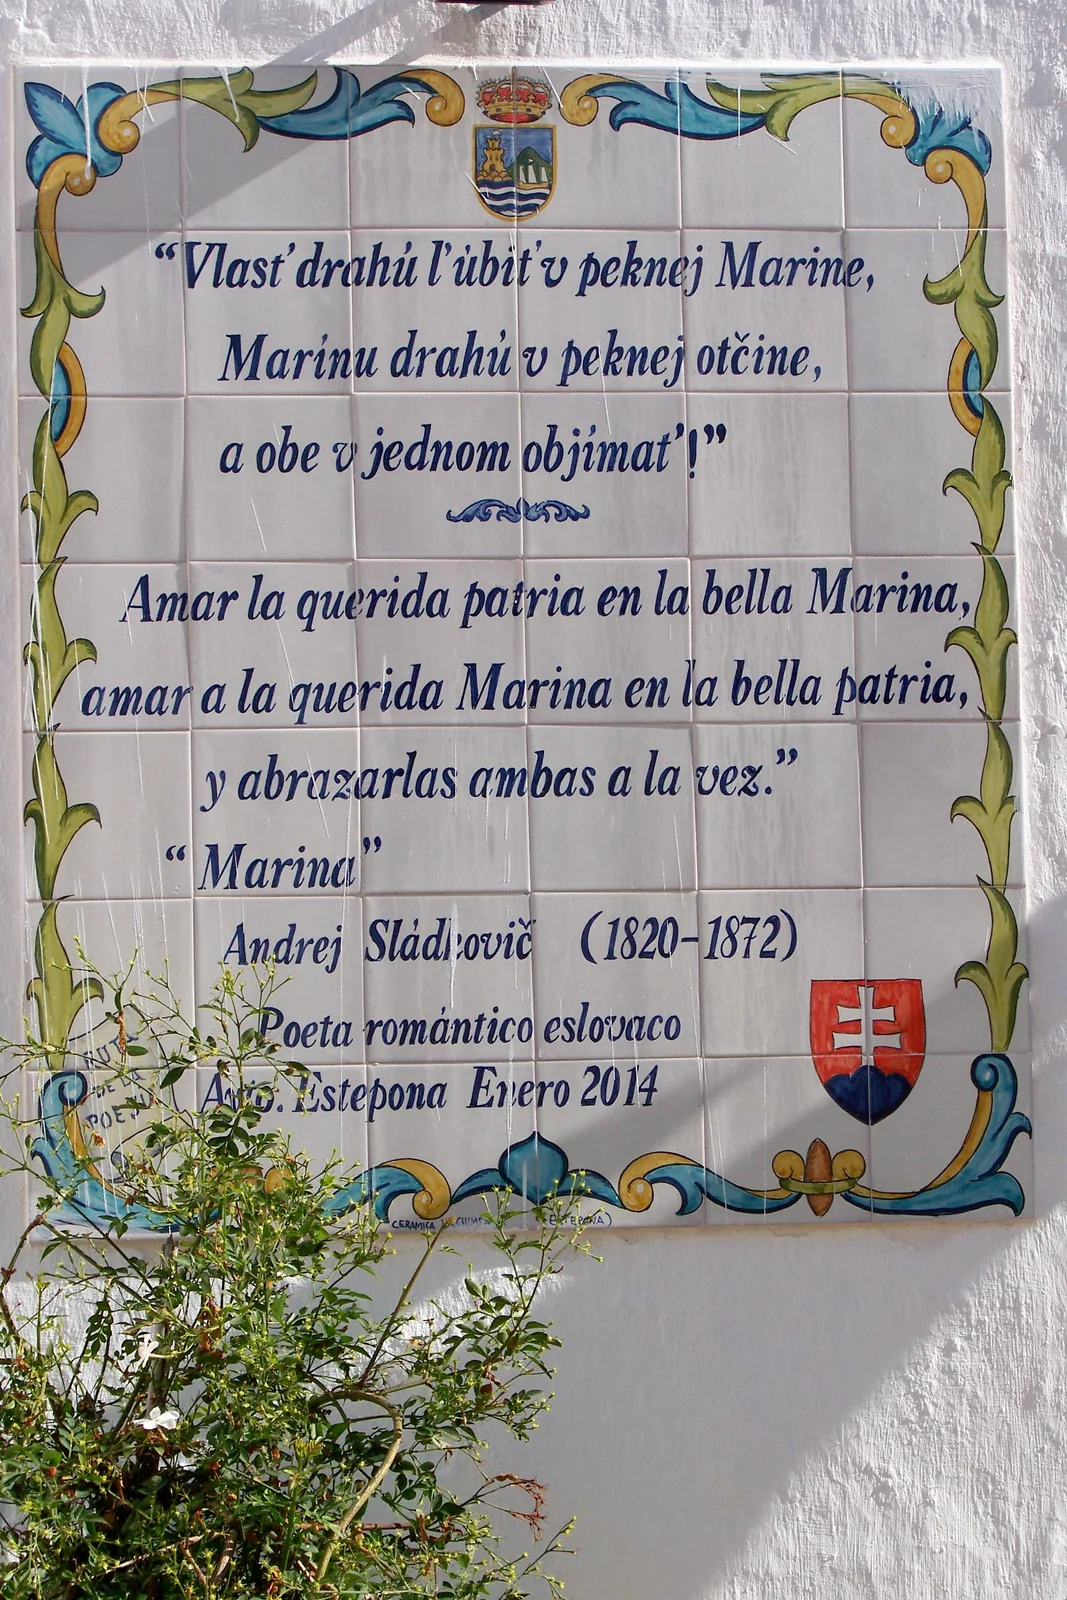 “Vlast' drahú l'úbit' v peknej Marine,
Marínu drahú v peknej otčine,
a obe v jednom objímat'!”
Amar la querida patria en la bella Marina,
amar a la querida Marina en la bella patria,
y abrazarlas ambas a la vez.”
“Marina”
Andrej Sládkovič (1820-1872)
Poeta romántico eslovaco
Ayto. Estepona Enero 2014
RUTA
DE LA
POESÍA
CERAMICA ESTEPONA)